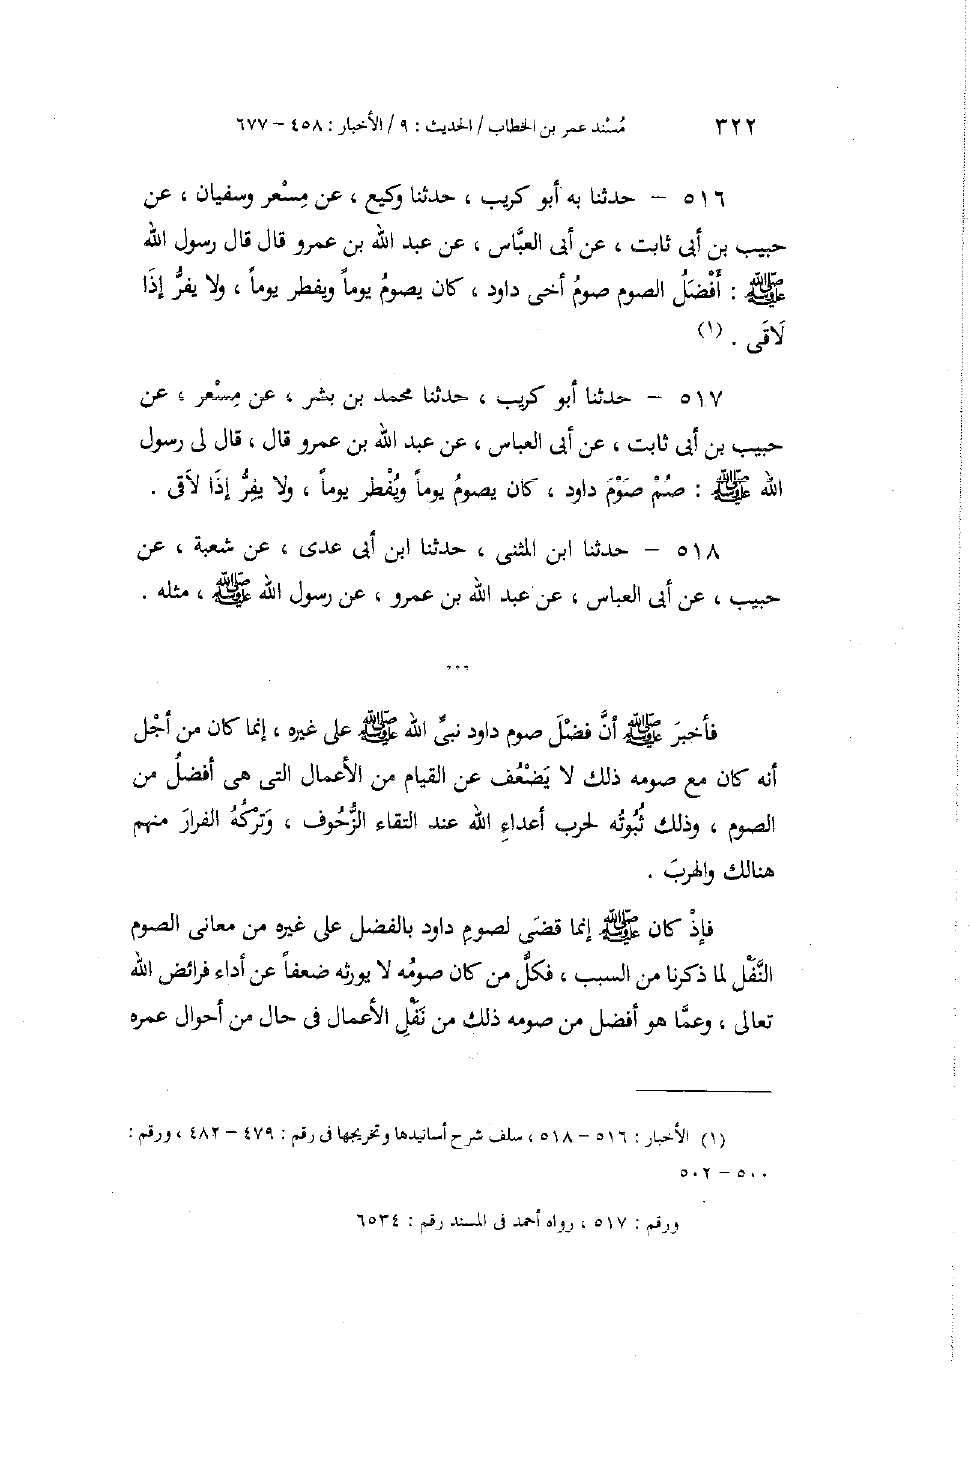 ٣٢٢ مُسْند عمر بن الخطاب / الحديث : ٩ / الأخبار : ٤٥٨ – ٦٧٧
٥١٦ – حدثنا به أبو كريب ، حدثنا وكيع ، عن مِسْعر وسفيان ، عن
حبيب بن أبى ثابت ، عن أبى العبَّاس ، عن عبد الله بن عمرو قال قال رسول الله
ﷺ : أَفْضَلُ الصوم صومُ أخى داود ، كان يصومُ يوماً ويفطر يوماً ، ولا يفرُّ إذَا
لَاقَى . (١)
٥١٧ – حدثنا أبو كريب ، حدثنا محمد بن بشر ، عن مِسْعر ، عن
حبيب بن أبى ثابت ، عن أبى العباس ، عن عبد الله بن عمرو قال ، قال لى رسول
الله ﷺ : صُمْ صَوْمَ داود ، كان يصومُ يوماً ويُفْطر يوماً ، ولا يفِرُّ إذَا لاَقى .
٥١٨ – حدثنا ابن المثنى ، حدثنا ابن أبى عدى ، عن شعبة ، عن
حبيب ، عن أبى العباس ، عن عبد الله بن عمرو ، عن رسول الله ﷺ ، مثله .
...
فأخبرَ ﷺ أنَّ فضْلَ صوم داود نبىِّ الله ﷺ على غيره ، إنما كان من أجْل
أنه كان مع صومه ذلك لا يَضْعُف عن القيام من الأعمال التى هى أفضلُ من
الصوم ، وذلك ثُبُوتُه لحرب أعداءِ الله عند التقاء الزُّحُوف ، وَتركُهُ الفرارَ منهم
هنالك والهربَ .
فإذْ كان ﷺ إنما قضَى لصومِ داود بالفضل على غيره من معانى الصوم
النَّفْل لما ذكرنا من السبب ، فكلُّ من كان صومُه لا يورثه ضعفاً عن أداء فرائض الله
تعالى ، وعمَّا هو أفضل من صومه ذلك من نَفْلِ الأعمال فى حال من أحوال عمره
(١) الأخبار : ٥١٦ – ٥١٨ ، سلف شرح أسانيدها وتخريجها فى رقم : ٤٧٩ – ٤٨٢ ، ورقم :
٥٠٠ – ٥٠٢
ورقم : ٥١٧ ، رواه أحمد فى المسند رقم : ٦٥٣٤